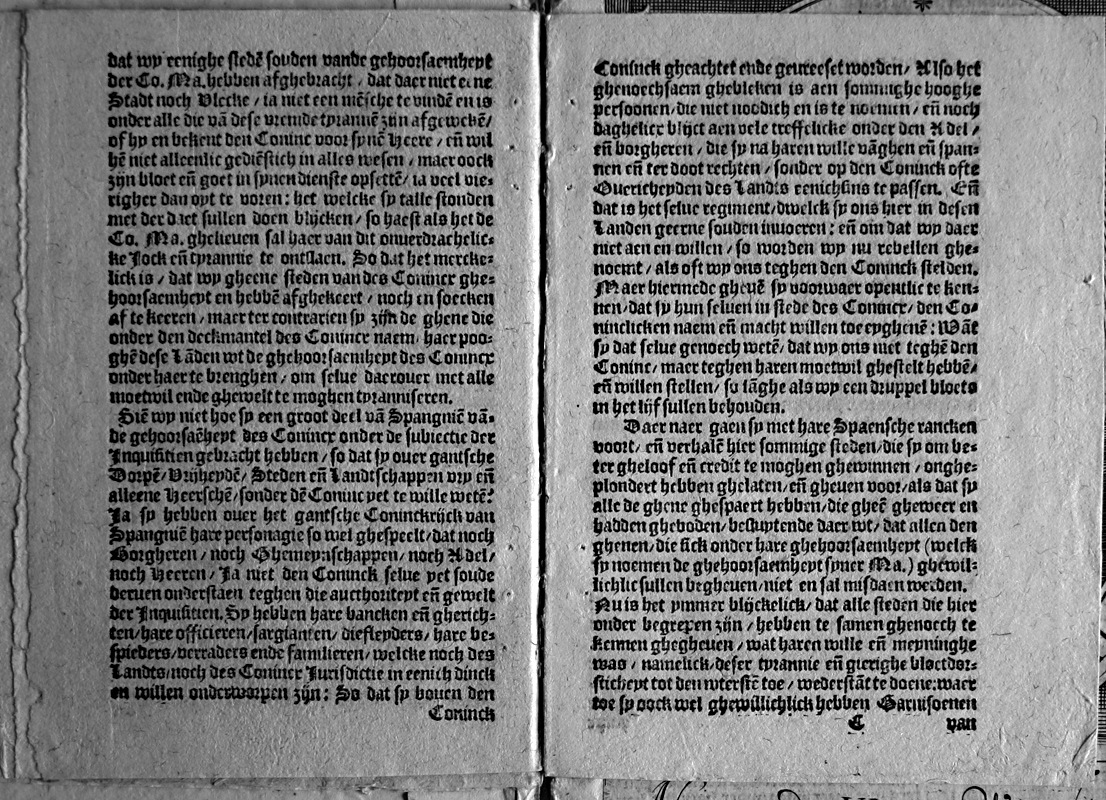 dat wy eenighe stedē souden vande gehoorsaemheyt
der Co. Ma. hebben afghebracht / dat daer niet eene
Stadt noch Vlecke / ia niet een mēsche te vindē en is
onder alle die vā dese vremde tyrannie zijn afgewekē /
of hy en bekent den Coninc voor synē Heere / eñ wil
hē niet alleenlic gediēstich in alles wesen / maer oock
zijn bloet eñ goet in synen dienste opsettē / ia veel vie-
righer dan oyt te voren: het welcke sy talle stonden
met der daet sullen doen blijcken / so haest als het de
Co. Ma. ghelieuen sal haer van dit onuerdrachelic-
ke Jock eñ tyrannie te ontslaen. So dat het mercke-
lick is / dat wy gheene steden van des Conincx ghe-
hoorsaemheyt en hebbē afghekeert / noch en soecken
af te keeren / maer ter contrarien sy zijn de ghene die
onder den deckmantel des Conincx naem / haer poo-
ghē dese Lāden wt de ghehoorsaemheyt des Conincx
onder haer te brenghen / om selue daerouer met alle
moetwil ende ghewelt te moghen tyranniseren.
Siē wy niet hoe sy een groot deel vā Spangniē vā-
de gehoorsaēheyt des Conincx onder de subiectie der
Inquisitien gebracht hebben / so dat sy ouer gantsche
Dorpē / Vrijheydē / Steden eñ Landtschappen vry eñ
alleene Heerschē / sonder dē Coninc yet te wille wetē?
Ja sy hebben ouer het gantsche Coninckrijck van
Spangniē hare personagie so wel ghespeelt / dat noch
Borgheren / noch Ghemeynschappen / noch Adel /
noch Heeren / Ja niet den Coninck selue yet soude
deruen onderstaen teghen die aucthoriteyt eñ gewelt
der Inquisitien. Sy hebben hare bancken eñ gherich-
ten / hare officieren / sargianten / diefleyders / hare be-
spieders / verraders ende familieren / welcke noch des
Landts / noch des Conincx Jurisdictie in eenich dinck
en willen onderworpen zijn: So dat sy bouen den
Coninck
Coninck gheachtet ende geureeset worden / Also het
ghenoechsaem ghebleken is aen sommighe hooghe
persoonen / die niet noodich en is te noemen / eñ noch
daghelicx blijct aen vele treffelicke onder den Adel /
eñ borgheren / die sy na haren wille vāghen eñ span-
nen eñ ter doot rechten / sonder op den Coninck ofte
Ouericheyden des Landts eenichsins te passen. Eñ
dat is het selue regiment / dwelck sy ons hier in desen
Landen geerne souden inuoeren: eñ om dat wy daer
niet aen en willen / so worden wy nu rebellen ghe-
noemt / als oft wy ons teghen den Coninck stelden.
Maer hiermede gheuē sy voorwaer opentlic te ken-
nen / dat sy hun seluen in stede des Conincx / den Co-
ninclicken naem eñ macht willen toe eyghenē: Wāt
sy dat selue genoech wetē / dat wy ons niet teghē den
Coninc / maer teghen haren moetwil ghestelt hebbē /
eñ willen stellen / so lāghe als wy een druppel bloets
in het lijf sullen behouden.
Daer naer gaen sy met hare Spaensche rancken
voort / eñ verhalē hier sommige steden / die sy om be-
ter gheloof eñ credit te moghen ghewinnen / onghe-
plondert hebben ghelaten / eñ gheuen voor / als dat sy
alle de ghene ghespaert hebben / die gheē gheweer en
hadden gheboden / besluytende daer wt / dat allen den
ghenen / die sick onder hare ghehoorsaemheyt (welck
sy noemen de ghehoorsaemheyt syner Ma.) ghewil-
lichlic sullen begheuen / niet en sal misdaen werden.
Nu is het ymmer blijckelick / dat alle steden die hier
onder begrepen zijn / hebben te samen ghenoech te
kennen ghegheuen / wat haren wille eñ meyninghe
was / namelick / deser tyrannie eñ gierighe bloetdor-
sticheyt tot den wterstē toe / wederstāt te doene: waer
toe sy oock wel ghewillichlick hebben Garnisoenen
C van